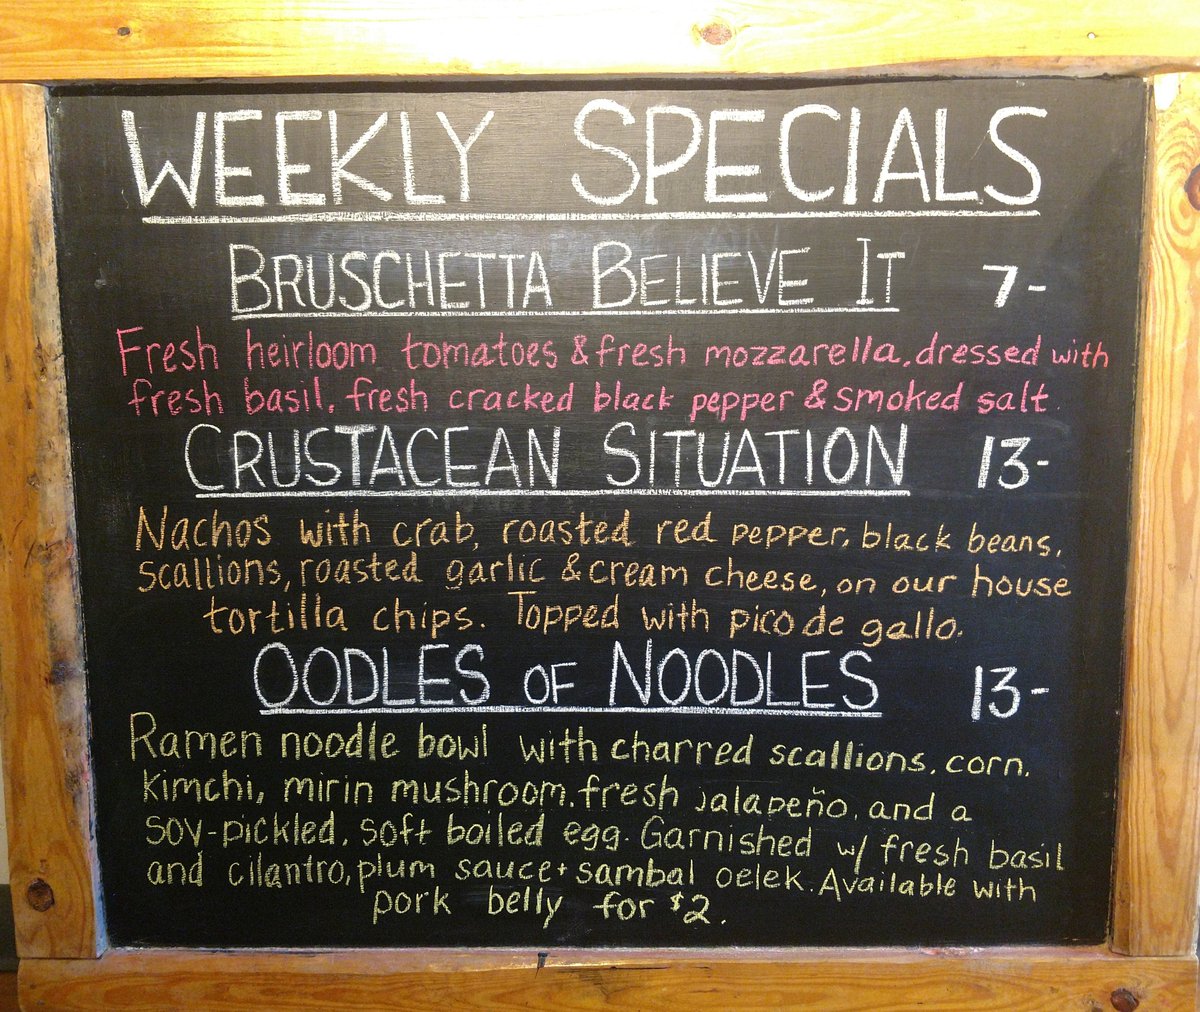 WEEKLY SPECIALS
BRUSCHETTA BELIEVE IT 7-
Fresh heirloom tomatoes & fresh mozzarella, dressed with
fresh basil, fresh cracked black pepper & smoked salt.
CRUSTACEAN SITUATION 13-
Nachos with crab, roasted red pepper, black beans,
scallions, roasted garlic & cream cheese, on our house
tortilla chips. Topped with pico de gallo.
OODLES OF NOODLES 13-
Ramen noodle bowl with charred scallions, corn,
kimchi, mirin mushroom, fresh jalapeño, and a
soy-pickled, soft boiled egg. Garnished w/ fresh basil
and cilantro, plum sauce + sambal oelek. Available with
pork belly for $2.